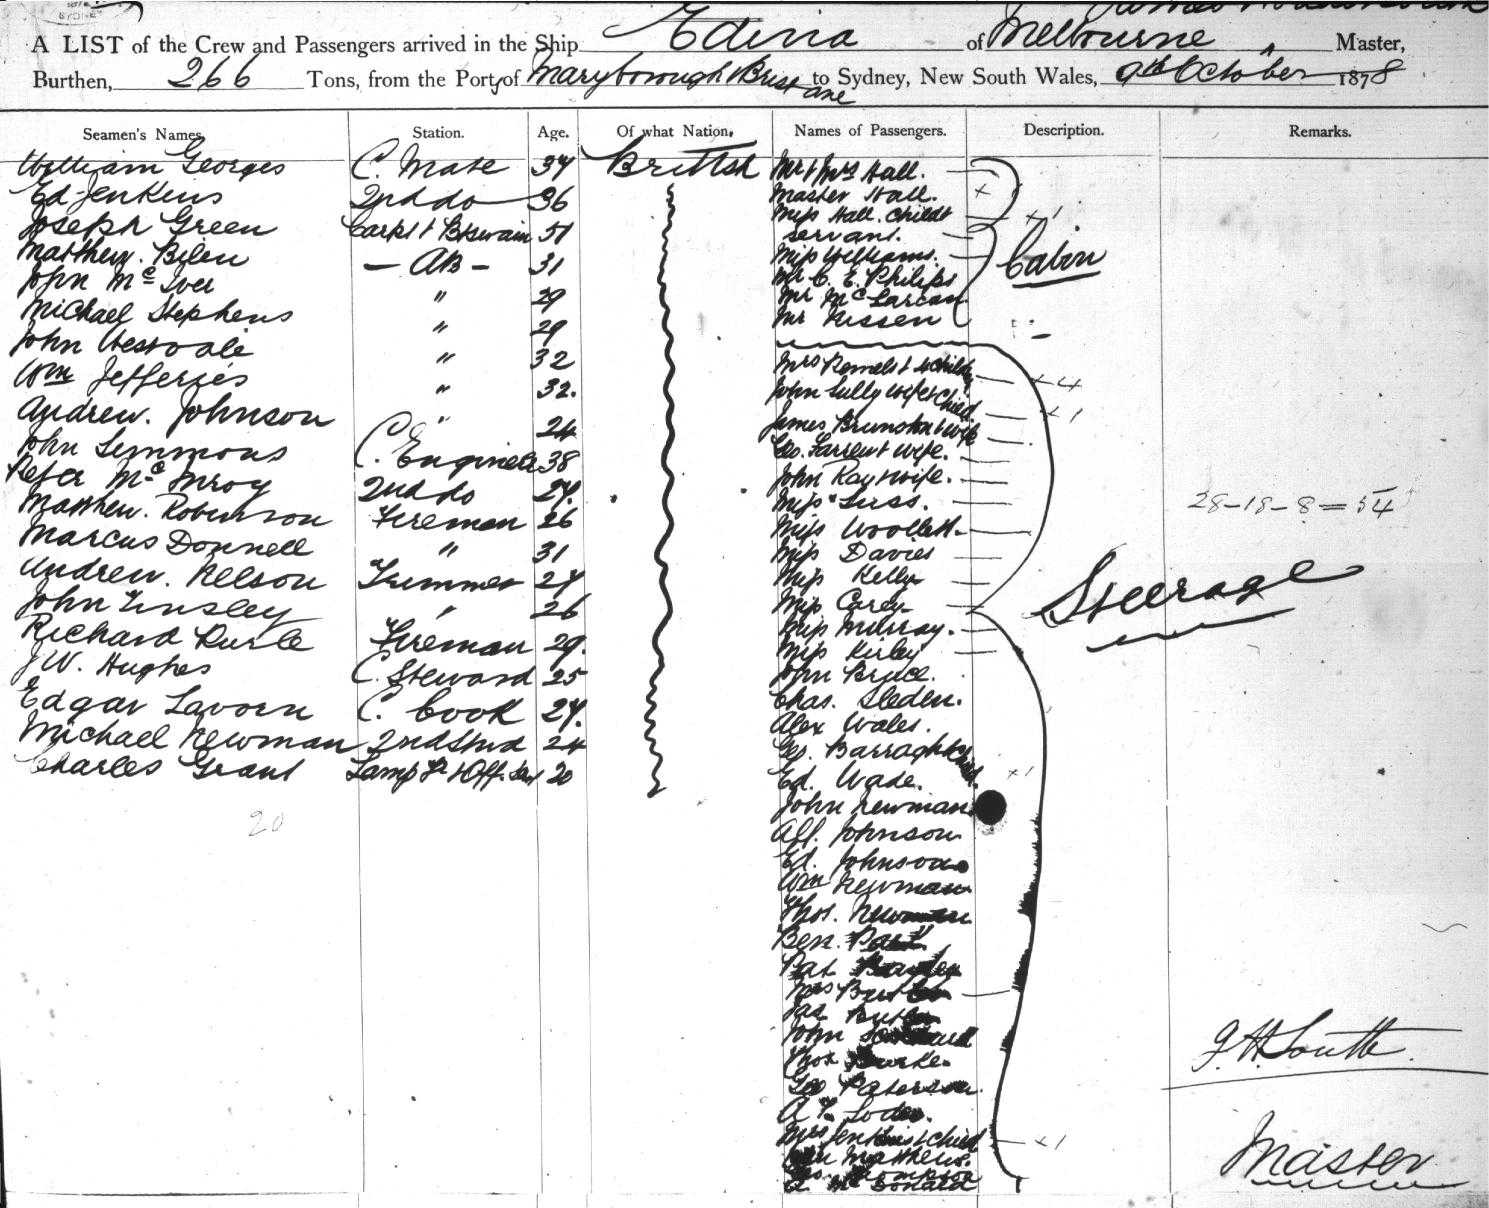 SYDNEY
A LIST of the Crew and Passengers arrived in the Ship Edina of Melbourne " Master,
Burthen, 266 Tons, from the Port of Maryborough & Brisbane to Sydney, New South Wales, 9th October 1878
Seamen's Names, Station. Age. Of what Nation. Names of Passengers. Description. Remarks.
William Georges C. Mate 34 British
Ed Jenkens 2nd do 36
Joseph Green Carpt & Bswain 51
Matthew. Bilen — AB — 31
John McIver " 29
Michael Stephens " 29
John Westdale " 32
Wm Jefferies " 32.
Andrew. Johnson " 24
John Simmons C. Engineer 38
Peter McInroy 2nd do 27.
Matthew. Robinson Fireman 26
Marcus Donnell " 31
Andrew. Nelson Trimmer 27
John Tinsley " 26
Richard Fireman 29.
J W. Hughes C. Steward 25
Edgar Lavorn C. Cook 27.
Michael Newman 2nd Stwd 24
Charles Grant Lamp Tr & Off. 20
20
Mr & Mrs Hall.
Master Hall. x
Miss Hall. Child & x 1
servant.
Miss Williams.
Mr C. E. Philips
Mr McLarcan
Mr Nissen
Cabin
Mrs & 4 Childn x 4
John Sully Wife & Child. x 1
James Brunston & Wife
Geo. Farren & Wife.
John Ray & Wife.
Miss
Miss Woollett
Miss Davies
Miss Kelly
Miss Carey
Steerage
28-18-8=54
Miss Murray.
Miss Kirley
John Bruce.
Chas. Sleden.
Alex Wales.
Geo. Barragh & Child. x 1
Ed. Wade.
John Newman
Alf. Johnson
Ed. Johnson
Wm Newman
Thos. Newman
Ben.
Pat
Mrs Butler
Jas Butler
John
Thos Burke.
Geo Paterson.
A
Mrs Jenkins & Child x 1
Matthews.
Geo. Thompson
McDonald
J. H. South
Master